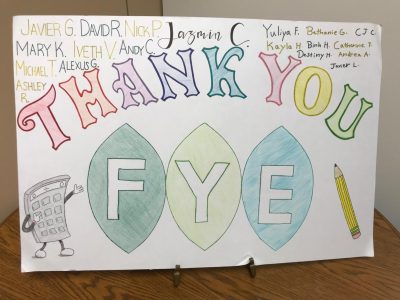 JAVIER G. DAVID R. NICK P.
MARY K. IVETH V. ANDY C.
MICHAEL T. ALEXUS G.
ASHLEY
R.
Jazmin C.
Yuliya F. Bethanie G. CJ C.
Kayla H. Binh H. Catherine T.
Destiny M. Andrea A.
Janet L.
THANK YOU
FYE